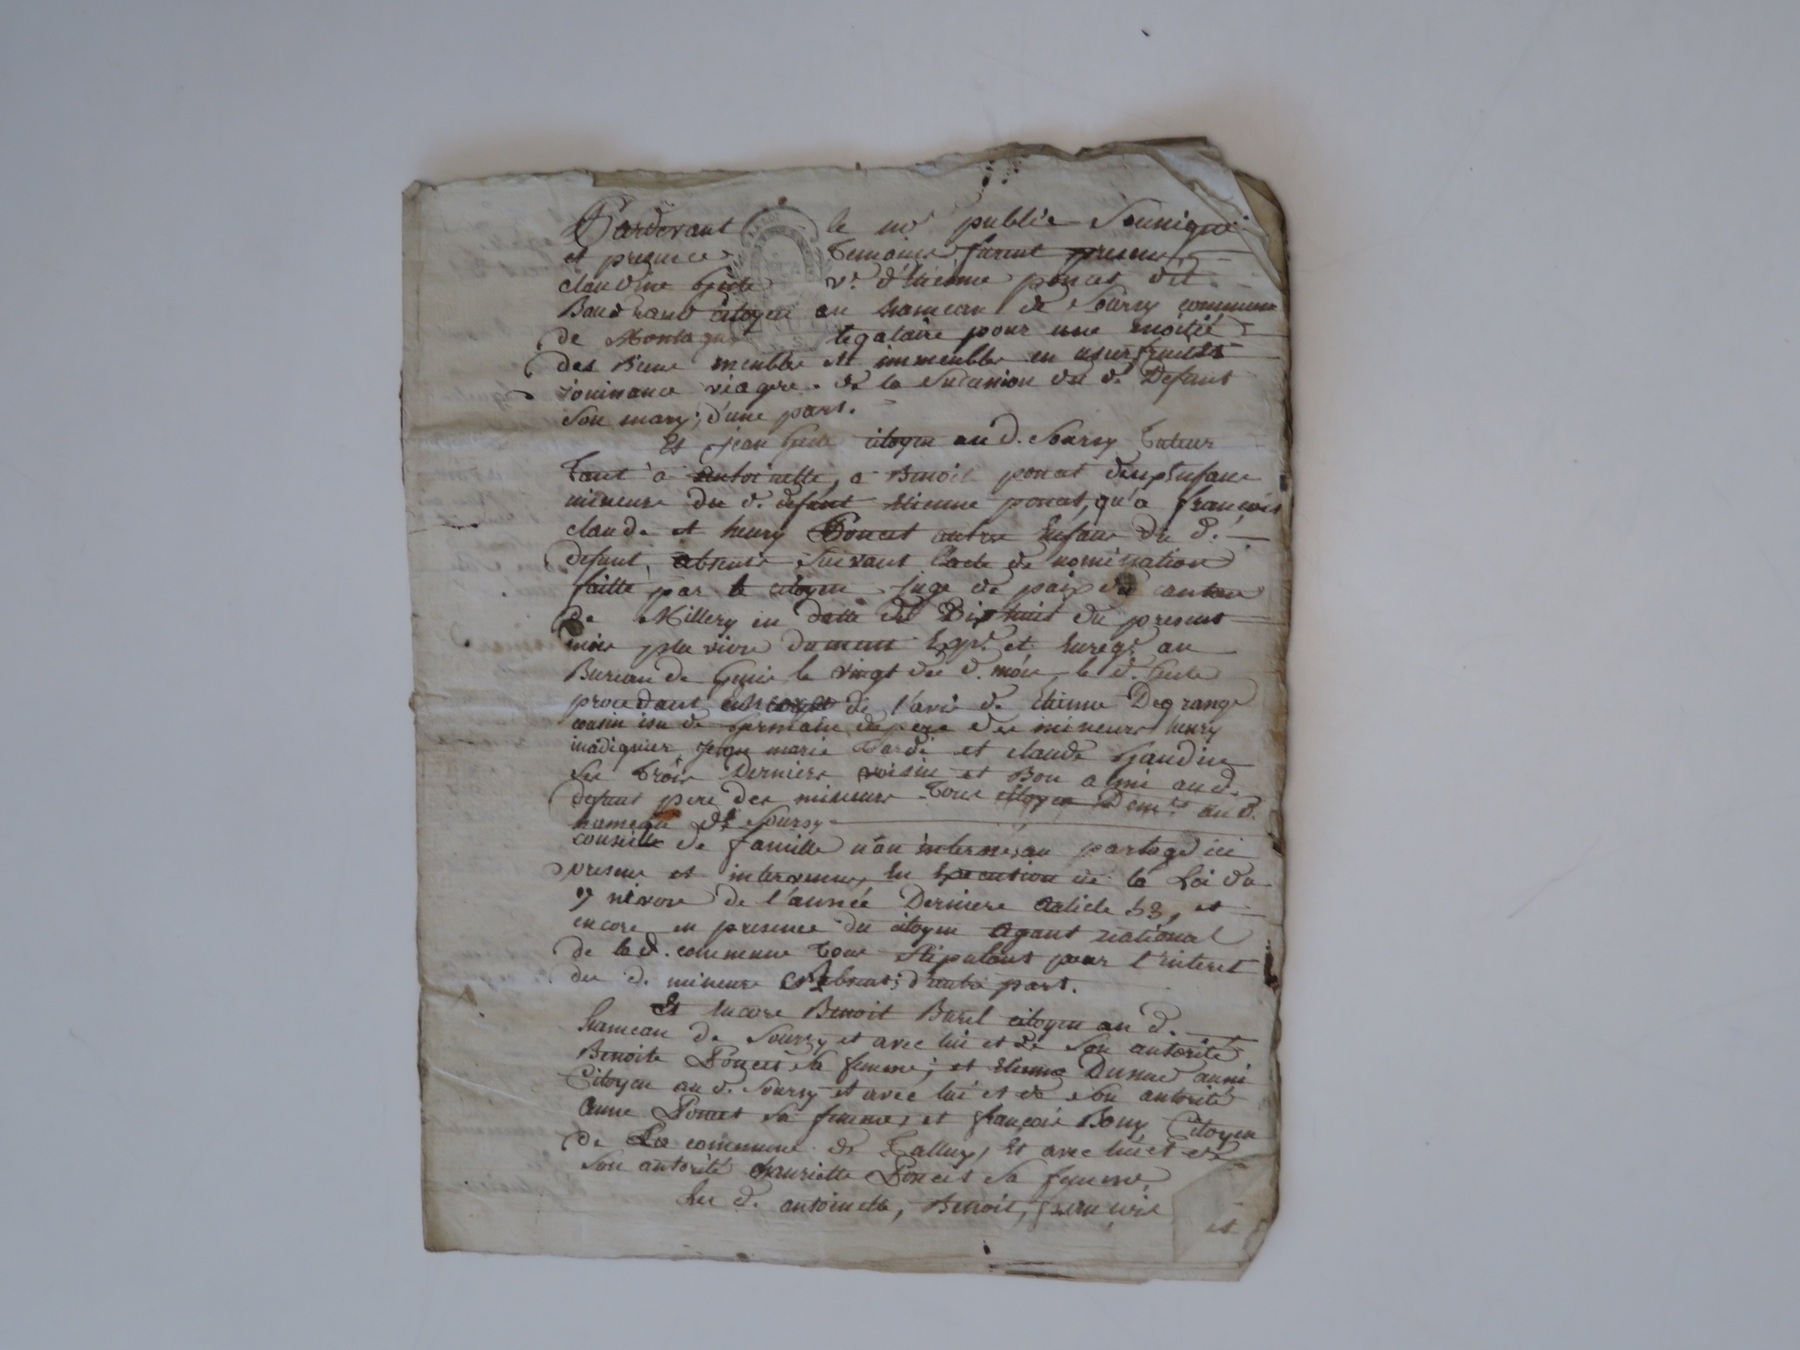 Pardevant le no.re public Soussigné
et presence Temoins furent presens
claudine v.e d'Etienne poncet dit
Baudrand citoyen au hameau de Soursy commune
de Montagny legataire pour une moitié
des Biens meubles et immeubles en usufruits
jouissance viagere de la Succession du d. Defunt
Son mary; d'une part.
Et jean citoyen au d. Soursy Tuteur
Tant à antoinette, a Benoit poncet Enfans
mineurs du d. defunt Etienne poncet, qu'a françois
claude et henry Poncet autres Enfans du d.
defunt, absents Suivant l'acte de nomination
faitte par le citoyen Juge de paix du canton
de Millery en datte du Dix huit du present
mois pluviose dument Exp.é et Enreg.é au
Bureau de le vingt du d. mois, le d.
procedant de l'avis de Etienne Degrange
cousin issu de Germain du pere des mineurs henry
jean marie Tardi et claude Gaudin
les Trois Derniers voisins et Bon ami au d.
defunt pere des mineurs Tous citoyen Dem.ts au d.
hameau de Soursy
conseille de famille non interressé au partage ici
presens et intervenus, En Execution de la Loi du
9 nivose de l'année Derniere article 53, et
encore en presence du citoyen agant national
de lad. commune Tous Stipulans pour l'interet
des d. mineurs et absents; d'autre part.
Et Encore Benoit Burel citoyen au d.
hameau de Soursy et avec lui et de Son autorité
Benoite Poncet sa femme; et Etienne aussi
Citoyen au d. Soursy et avec lui et de Son autorité
anne Poncet sa femme, et françois Bony Citoyen
de La commune de Talluy, Et avec lui et de
Son autorité Poncet sa femme,
Les d. antoinette, Benoit, francois
et